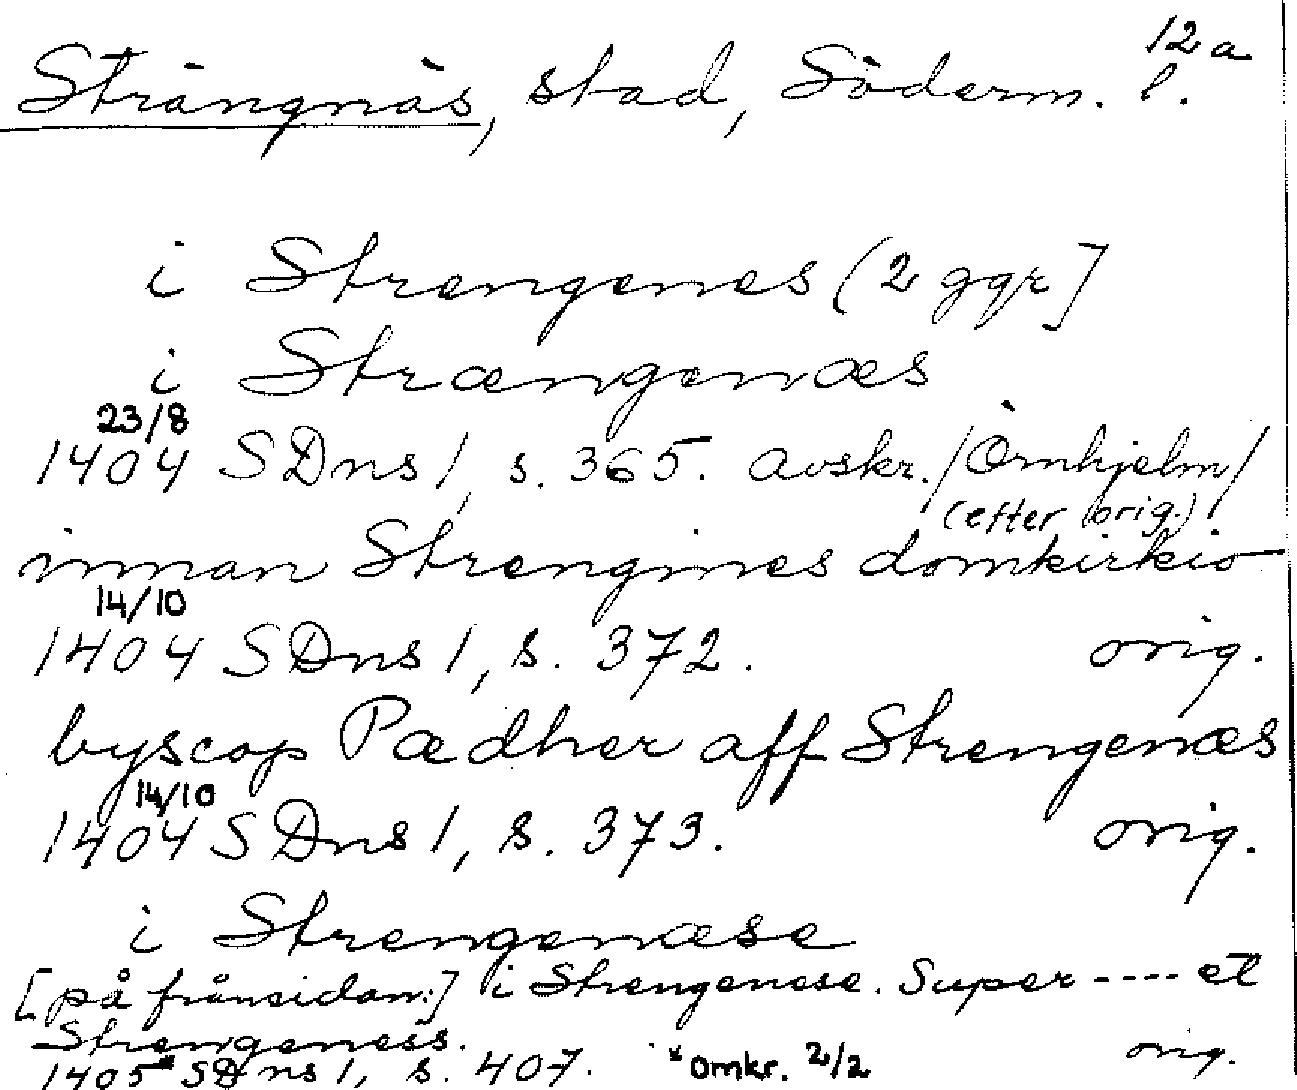 12a
Strängnäs, stad, Söderm. l.
i Strengenes (2 ggr]
i Strængenæs
23/8
1404 SDns 1, s. 365. avskr. /Örnhjelm/
(efter orig.)
innan Strengines domkirkio
14/10
1404 SDns 1, s. 372. orig.
byscop Pædher aff Strengenæs
14/10
1404 SDns 1, s. 373. orig.
i Strengenæse
[på frånsidan:] i Strengenese. Super ---- et
Strengeness.
1405* SDns 1, s. 407. *Omkr. 2/2 orig.